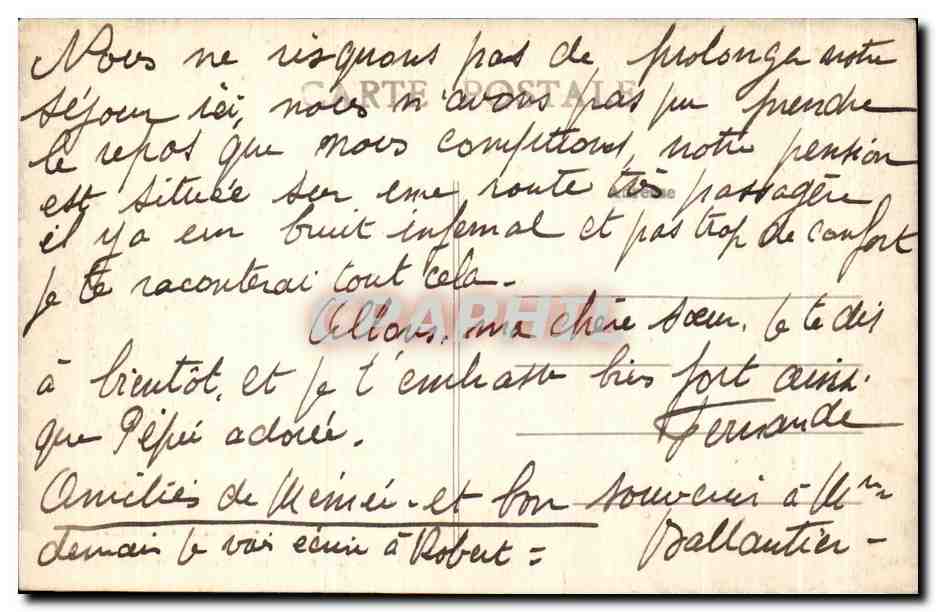 Nous ne risquons pas de prolonger notre
CARTE POSTALE
séjour ici, nous n'avons pas pu prendre
le repos que nous comptions, notre pension
est située sur une route très passagère
il y a un bruit infernal et pas trop de confort
je te raconterai tout cela -
Allons, ma chère sœur, je te dis
à bientôt, et je t'embrasse bien fort ainsi
que Pépée adorée.
Fernande
Amitiés de Mémée - et bon souvenir à Mme
demain je vais écrire à Robert = Ballautier -